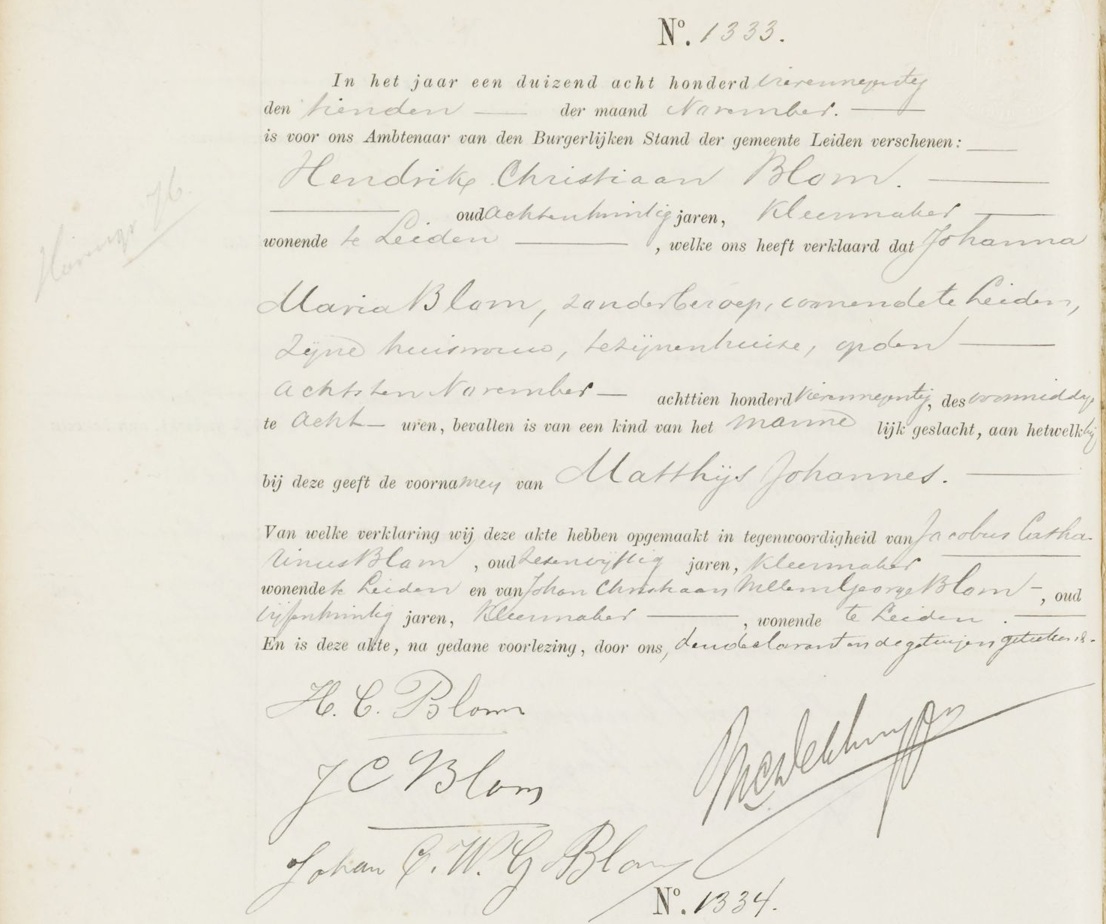 Nº. 1333.
In het jaar een duizend acht honderd vierennegentig
den tienden der maand November.
is voor ons Ambtenaar van den Burgerlijken Stand der gemeente Leiden verschenen:
Hendrik Christiaan Blom.
oud achtentwintig jaren, Kleermaker
wonende te Leiden , welke ons heeft verklaard dat Johanna
Maria Blom, zonder beroep, wonende te Leiden,
zijne huisvrouw, te zijnen huize, op den
achtsten November achttien honderd vierennegentig, des voormiddags
te acht uren, bevallen is van een kind van het manne lijk geslacht, aan hetwelk hij
bij deze geeft de voornamen van Matthijs Johannes.
Van welke verklaring wij deze akte hebben opgemaakt in tegenwoordigheid van Jacobus Catha-
rinus Blom , oud zesenvijftig jaren, Kleermaker
wonende te Leiden en van Johan Christiaan Willem George Blom , oud
vijfentwintig jaren, Kleermaker , wonende te Leiden .
En is deze akte, na gedane voorlezing, door ons, den declarant en de getuigen geteekend.
H. C. Blom
J C Blom
Johan C. W. G Blom
Nº. 1334.